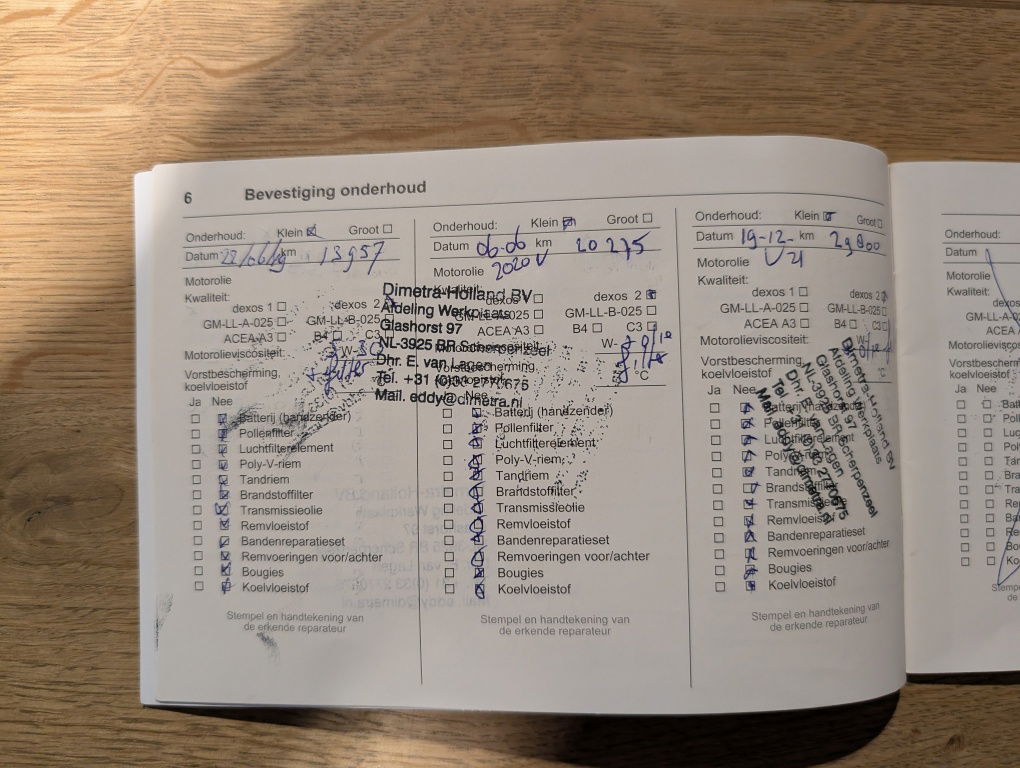 6 Bevestiging onderhoud
Onderhoud: Klein ☒ Groot ☐
Datum km 13957
Motorolie
Kwaliteit:
dexos 1 ☐ dexos 2
GM-LL-A-025 ☐ GM-LL-B-025 ☐
ACEA A3 ☐ C3
Motorolieviscositeit: W-30
Vorstbescherming, + filter
koelvloeistof
Ja Nee
☐ ☒ Batterij (handzender)
☐ ☒ Pollenfilter
☐ ☒ Luchtfilterelement
☐ ☒ Poly-V-riem
☐ ☒ Tandriem
☐ ☒ Brandstoffilter
☐ ☒ Transmissieolie
☐ ☒ Remvloeistof
☐ ☒ Bandenreparatieset
☐ ☒ Remvoeringen voor/achter
☐ ☒ Bougies
☐ ☒ Koelvloeistof
Stempel en handtekening van
de erkende reparateur
Onderhoud: Klein ☒ Groot ☐
Datum 06-06 km 20275
Motorolie 2020
Kwaliteit:
dexos 1 ☐ dexos 2 ☒
GM-LL-A-025 ☐ GM-LL-B-025 ☐
ACEA A3 ☐ B4 ☐ C3 ☐
Motorolieviscositeit: W- olie
Vorstbescherming, filter
koelvloeistof °C
Dimetra-Holland BV
Afdeling Werkplaats
Glashorst 97
NL-3925 BR Scherpenzeel
Dhr. E. van Lagen
Tel. +31 (0)33
Mail. eddy@dimetra.nl
Nee
☐ ☒ Batterij (handzender)
☐ ☒ Pollenfilter
☐ ☒ Luchtfilterelement
☐ ☒ Poly-V-riem
☐ ☒ Tandriem
☐ ☒ Brandstoffilter
☐ ☒ Transmissieolie
☐ ☒ Remvloeistof
☐ ☒ Bandenreparatieset
☐ ☒ Remvoeringen voor/achter
☐ ☒ Bougies
☐ ☒ Koelvloeistof
Stempel en handtekening van
de erkende reparateur
Onderhoud: Klein ☒ Groot ☐
Datum 19-12- km 29800
Motorolie
Kwaliteit:
dexos 1 ☐ dexos 2
GM-LL-A-025 ☐ GM-LL-B-025 ☐
ACEA A3 ☐ B4 ☐ C3 ☐
Motorolieviscositeit: W-
Vorstbescherming,
koelvloeistof
Dimetra-Holland BV
Afdeling Werkplaats
Glashorst 97
NL-3925 BR Scherpenzeel
Dhr. E. van Lagen
Mail. eddy@dimetra.nl
Ja Nee
☐ ☒ Batterij (handzender)
☐ ☒ Pollenfilter
☐ ☒ Luchtfilterelement
☐ ☒ Poly-V-riem
☐ ☒ Tandriem
☐ ☒ Brandstoffilter
☐ ☒ Transmissieolie
☐ ☒ Remvloeistof
☐ ☒ Bandenreparatieset
☐ ☒ Remvoeringen voor/achter
☐ ☒ Bougies
☐ ☒ Koelvloeistof
Stempel en handtekening van
de erkende reparateur
Onderhoud:
Datum
Motorolie
Kwaliteit:
Ja Nee